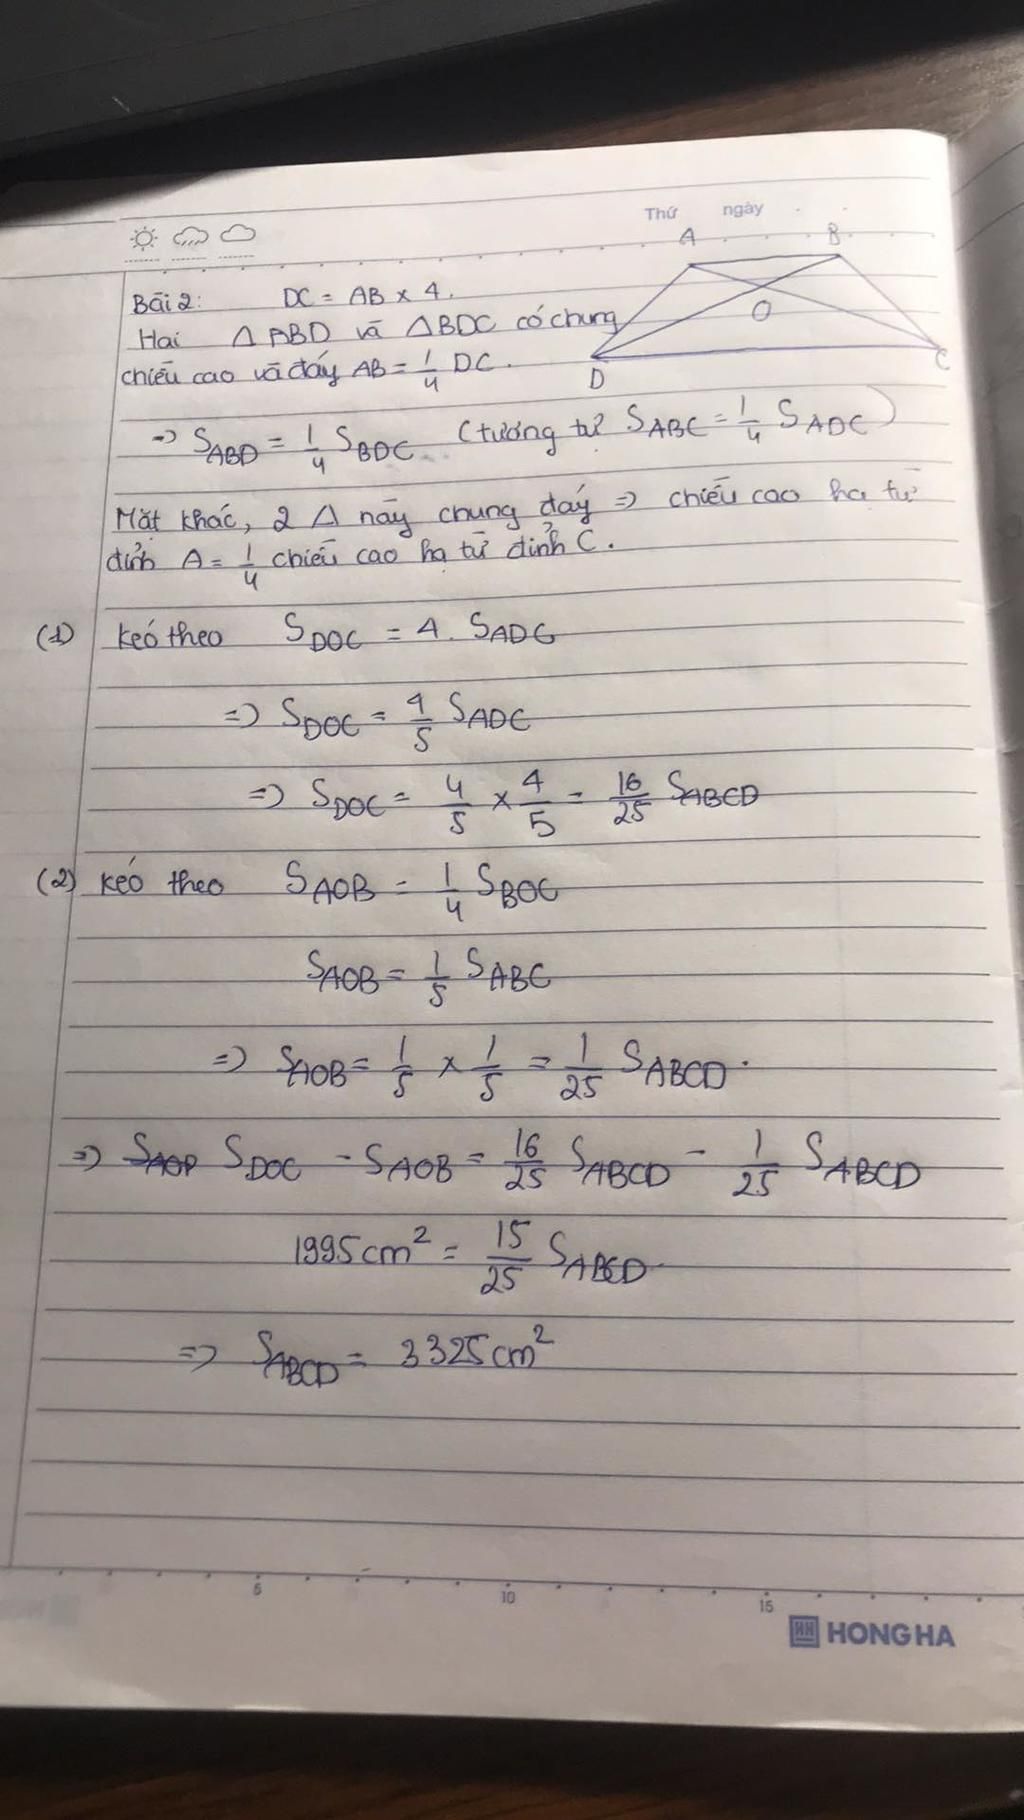 Thứ ngày
A B
Bài 2: DC = AB x 4.
Hai △ ABD và △BDC có chung
O
chiều cao và đáy AB = 1/4 DC.
D C
=> S_ABD = 1/4 S_BDC (tương tự S_ABC = 1/4 S_ADC)
Mặt khác, 2 △ này chung đáy => chiều cao hạ từ
đỉnh A = 1/4 chiều cao hạ từ đỉnh C.
(1) kéo theo S_DOC = 4. S_ADG
=> S_DOC = 4/5 S_ADC
=> S_DOC = 4/5 x 4/5 = 16/25 S_ABCD
(2) kéo theo S_AOB = 1/4 S_BOC
S_AOB = 1/5 S_ABC
=> S_AOB = 1/5 x 1/5 = 1/25 S_ABCD.
=> S_DOC - S_AOB = 16/25 S_ABCD - 1/25 S_ABCD
1995cm² = 15/25 S_ABCD
=> S_ABCD = 3325cm²
5 10 15
HH HONG HA